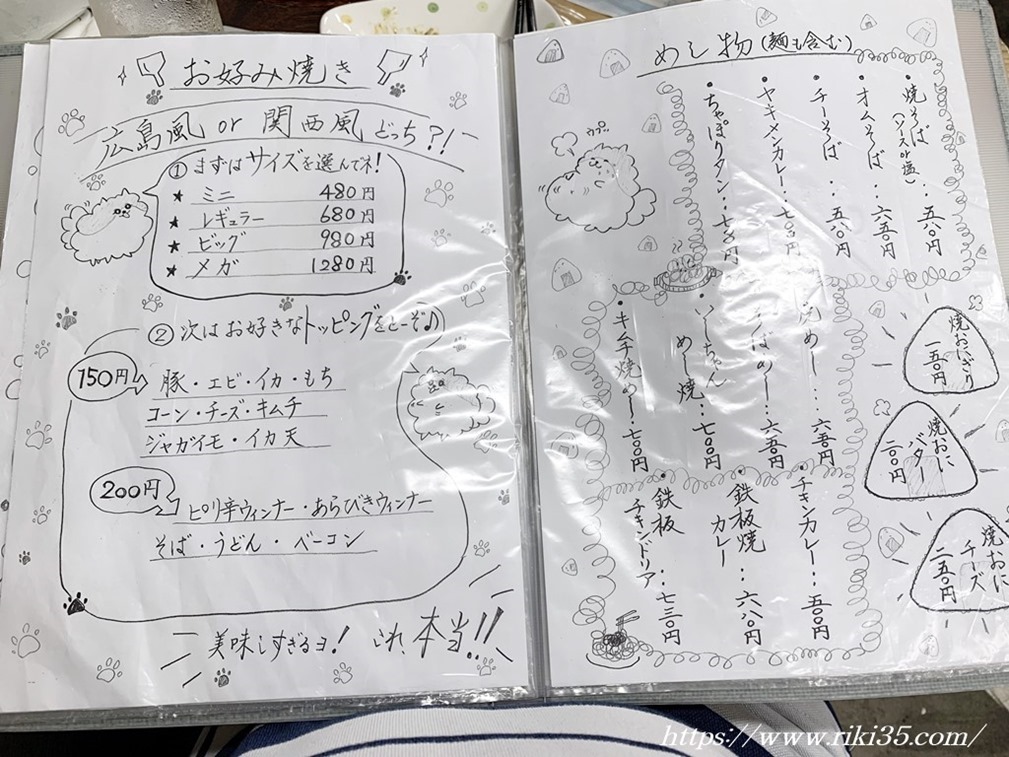 お好み焼き
広島風 or 関西風 どっち?!
① まずはサイズを選んでネ!
★ ミニ 480円
★ レギュラー 680円
★ ビッグ 980円
★ メガ 1280円
② 次はお好きなトッピングをどーぞ♪
150円
豚・エビ・イカ・もち
コーン・チーズ・キムチ
ジャガイモ・イカ天
200円
ピリ辛ウィンナー・あらびきウィンナー
そば・うどん・ベーコン
美味しすぎるヨ! これ、本当!!
めし物(麺も含む)
・焼そば(ソースor塩)‥五五〇円
・オムそば‥六五〇円
・チーそば‥五八〇円
・ヤキメンカレー‥七〇〇円
・ちゃぽりタン‥七〇〇円
めー‥六五〇円
そばめー‥六五〇円
いーちゃんめし焼‥七〇〇円
・キムチ焼めー‥七〇〇円
・チキンカレー‥五〇〇円
・鉄板焼カレー‥六八〇円
・鉄板チキンドリア‥七三〇円
焼おにぎり 一五〇円
焼おにバター 二〇〇円
焼おにチーズ 二五〇円
https://www.riki35.com/